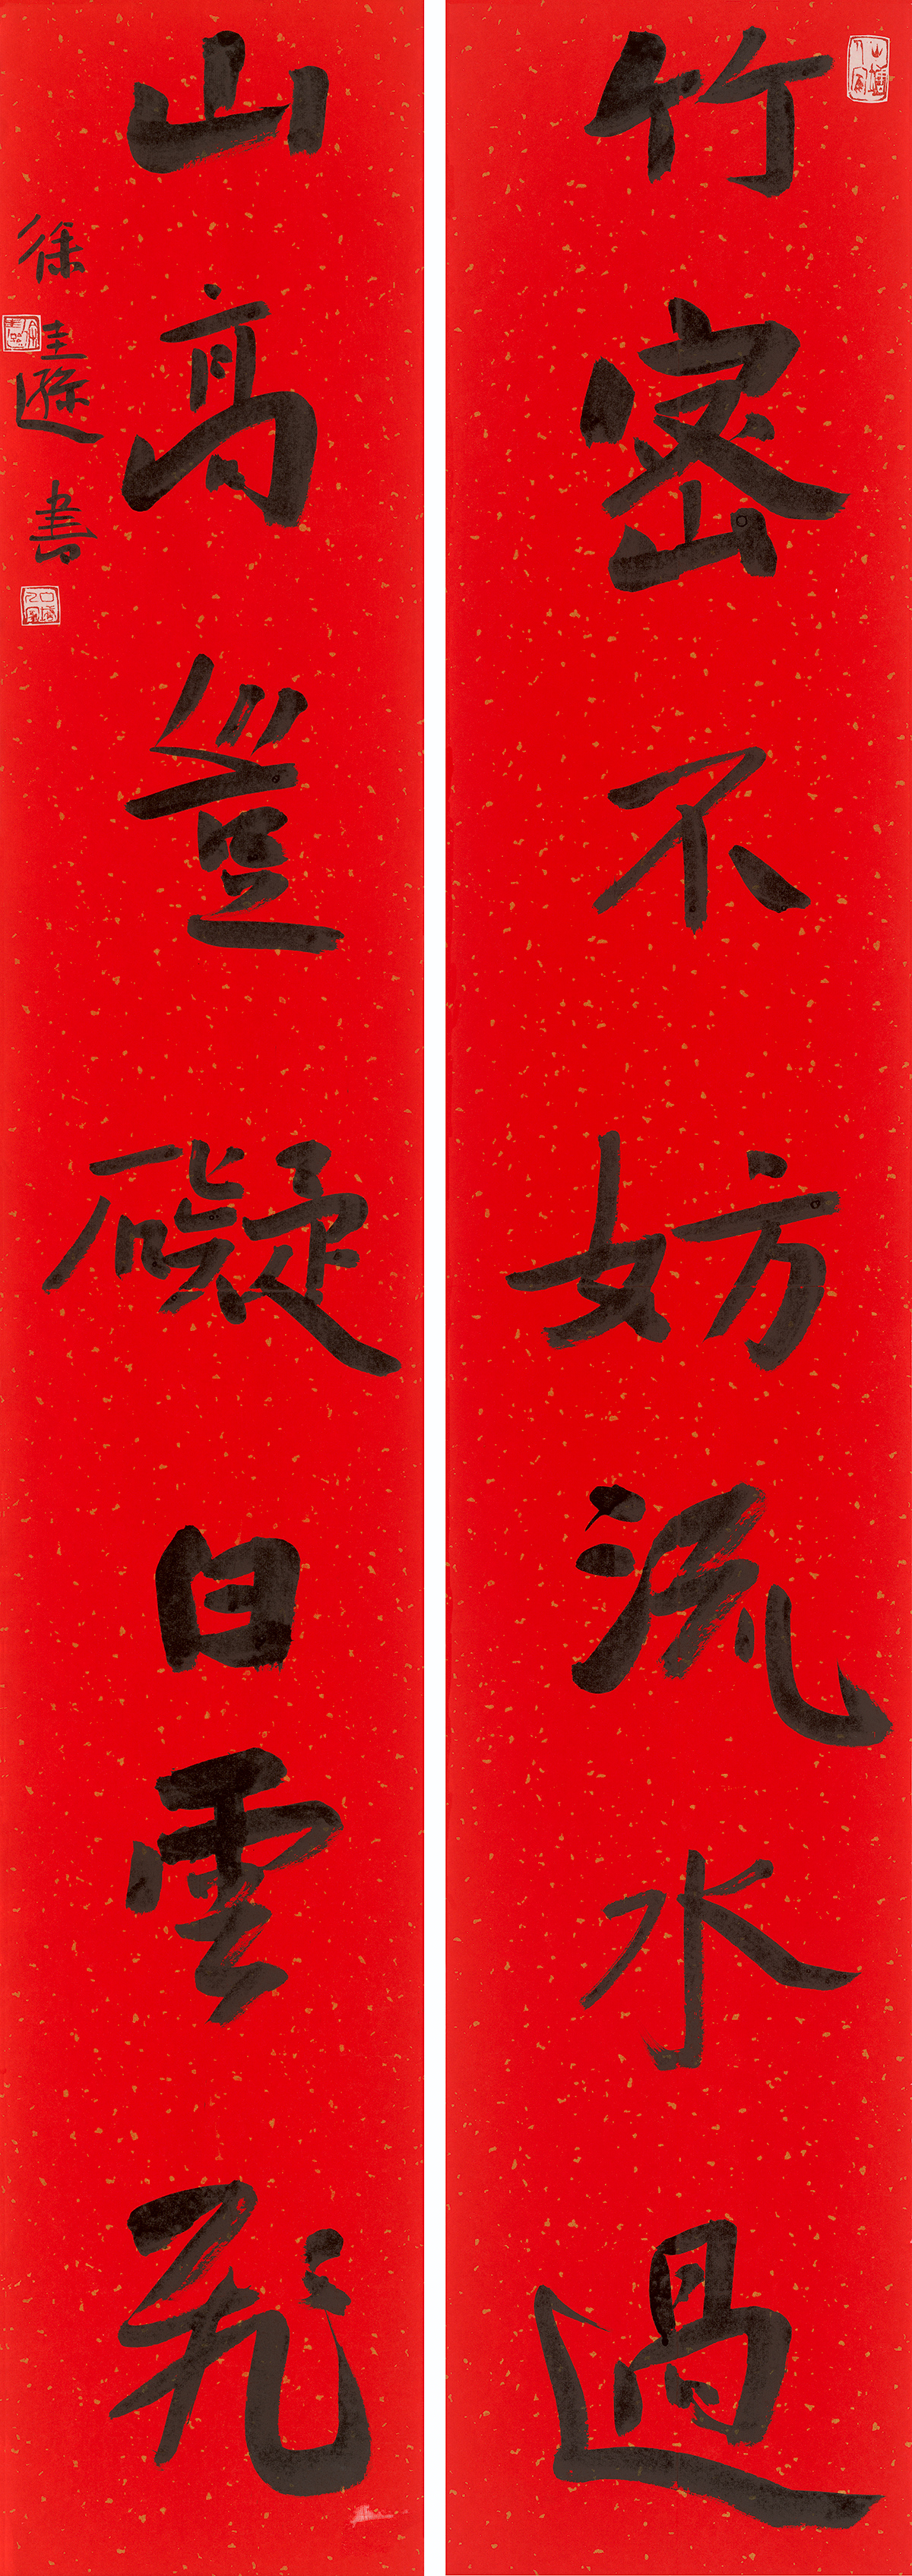 竹密不妨流水過
山高豈礙白雲飛
徐圭遜書